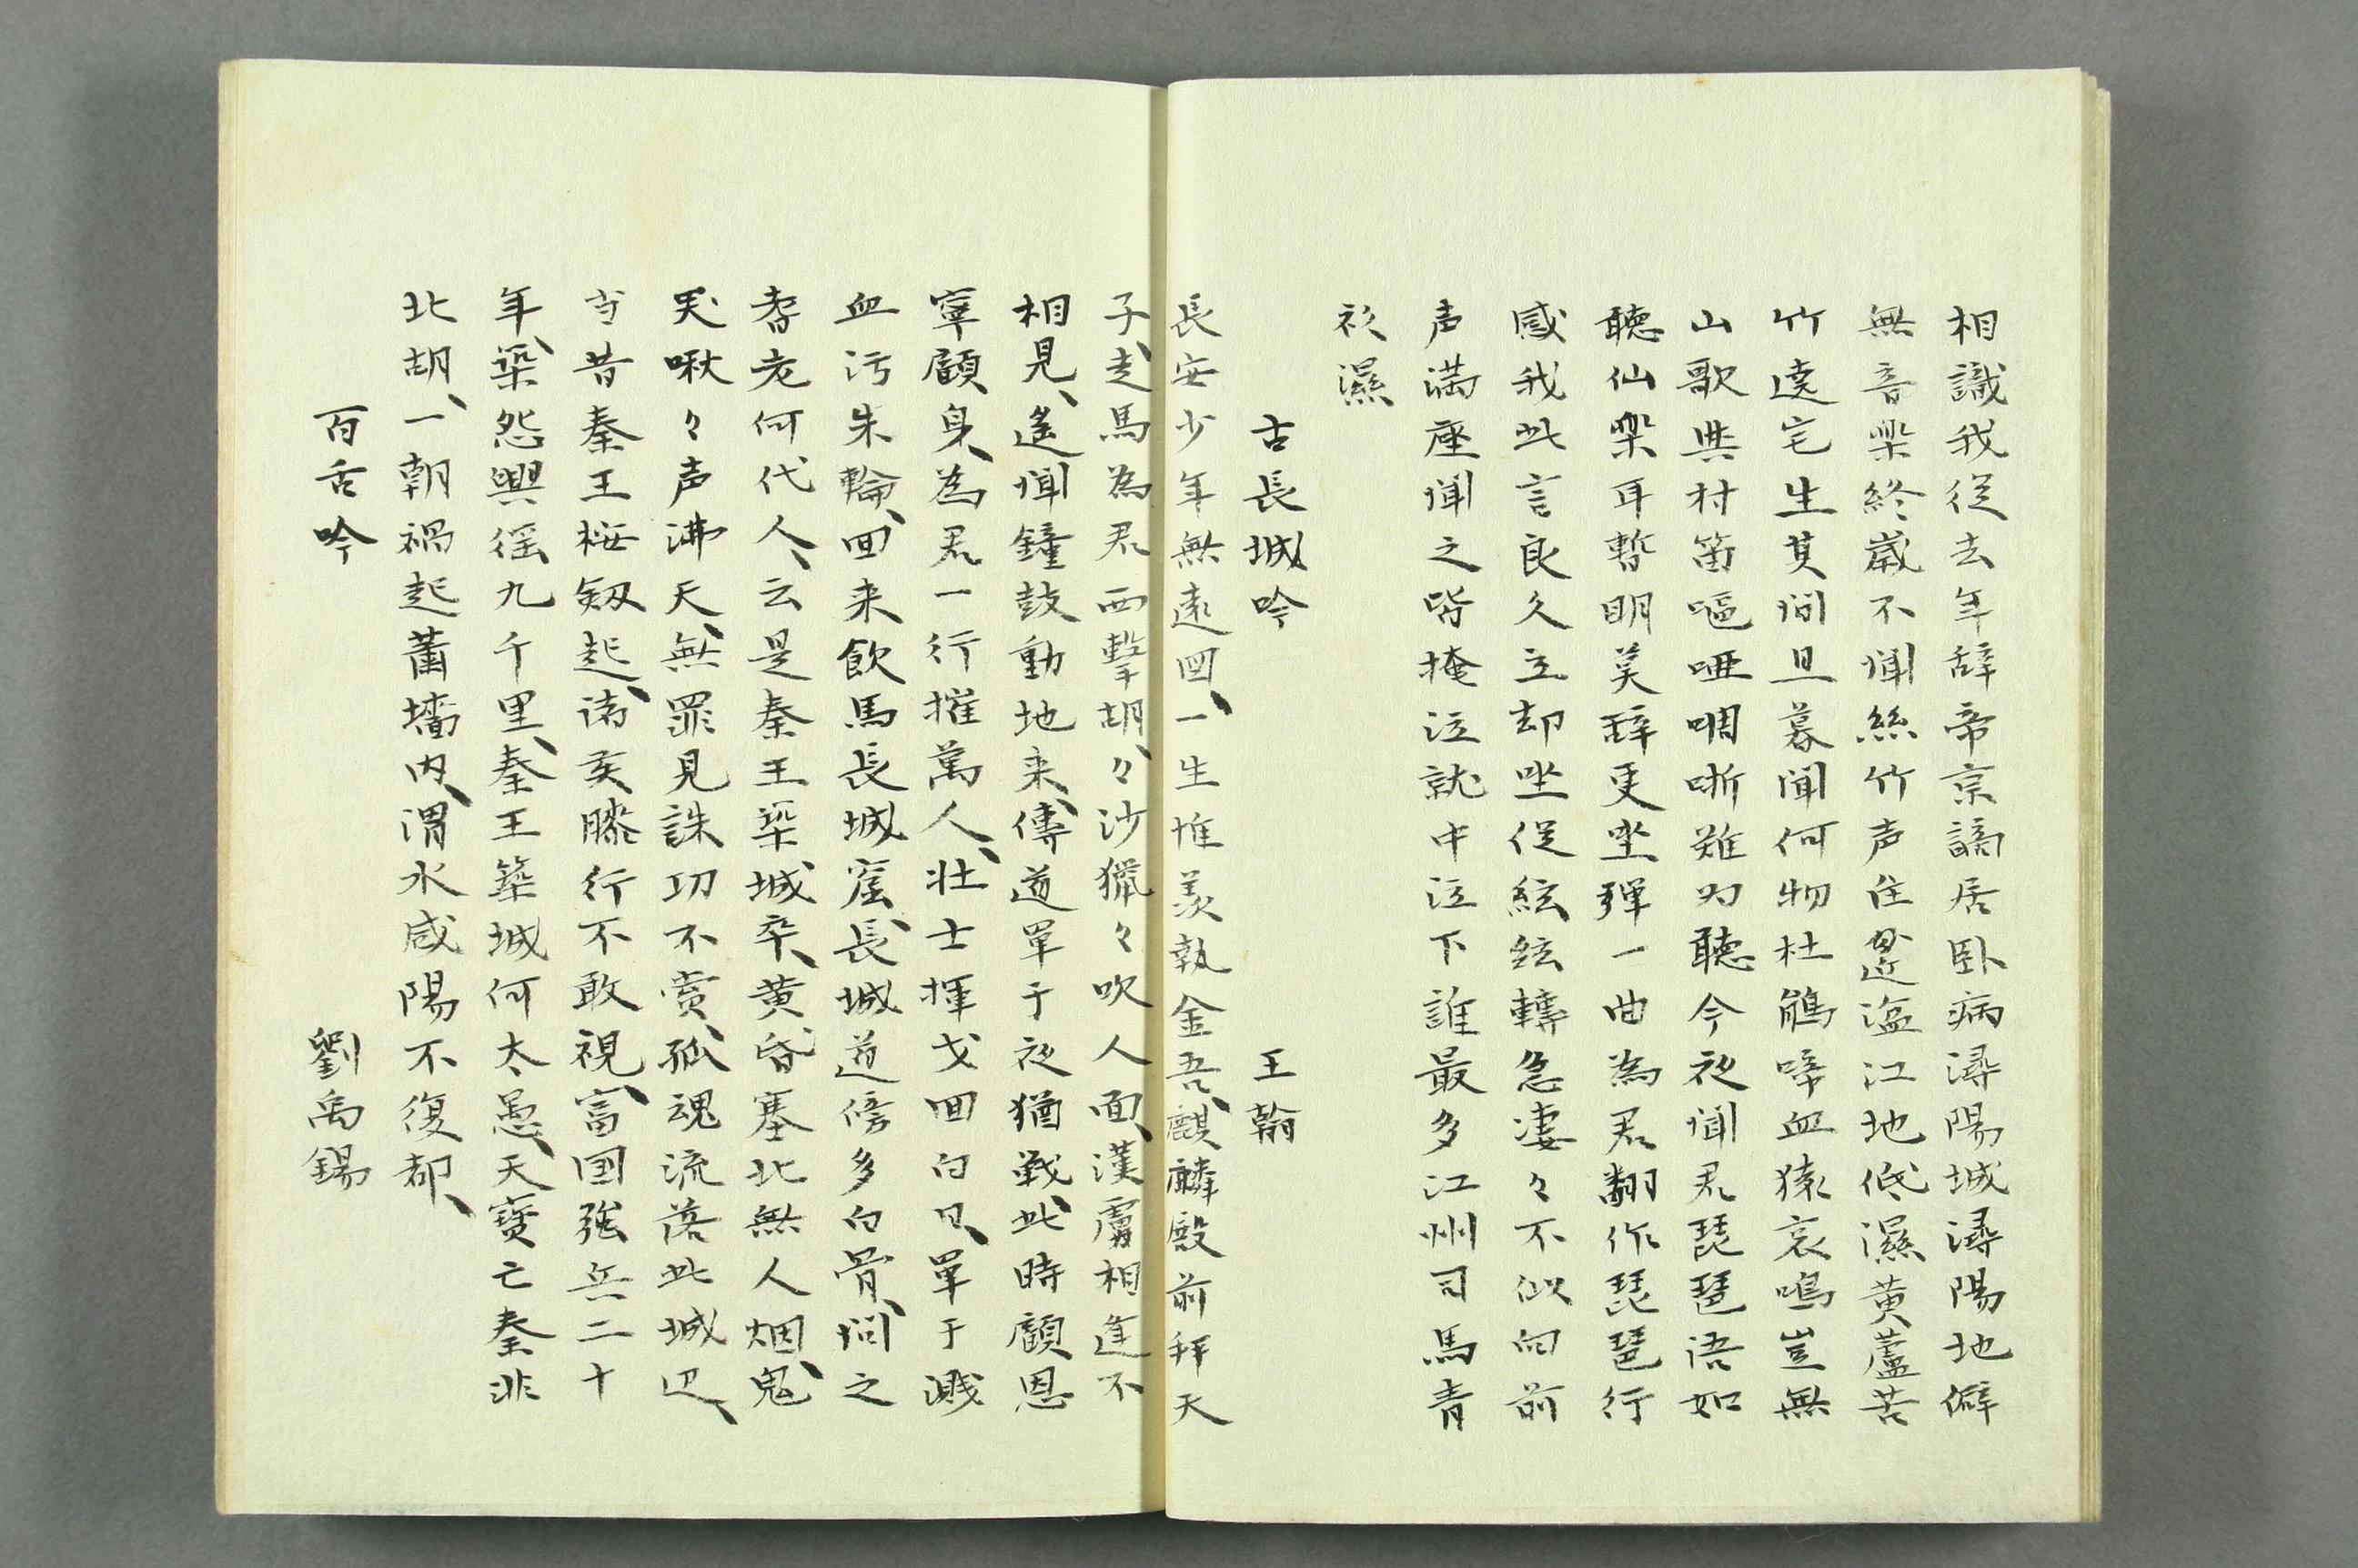 相識我從去年辞帝京謫居卧病潯陽城潯陽地僻
無音楽終歳不闻絲竹声住近湓江地低濕黄蘆苦
竹遶宅生其间旦暮闻何物杜鵑啼血猿哀鳴豈無
山歌與村笛嘔哑啁哳难为聽今夜闻君琵琶语如
聽仙楽耳暫明莫辞更坐弾一曲為君翻作琵琶行
感我此言良久立却坐促絃絃轉急凄々不似向前
声満座闻之皆掩泣就中泣下誰最多江州司馬青
衫濕
古長城吟　王翰
長安少年無遠図、一生惟羨執金吾、麒麟殿前拜天
子、走馬為君西擊胡、々沙獵々吹人面、漢虜相逢不
相見、遙闻鐘鼓動地来、傳道單于夜猶戦、此時顧恩
寧顧身、為君一行摧萬人、壮士揮戈回白日、單于濺
血污朱輪、回来飲馬長城窟、長城道傍多白骨、问之
耆老何代人、云是秦王築城卒、黄昏塞北無人烟、鬼
哭啾々声沸天、無罪見誅功不賞、孤魂流落此城辺、
当昔秦王按剱起、诸侯膝行不敢視、富国强兵二十
年、築怨興徭九千里、秦王築城何太愚、天寶亡秦非
北胡、一朝禍起蕭墻内、渭水咸陽不復都、
百舌吟　劉禹錫